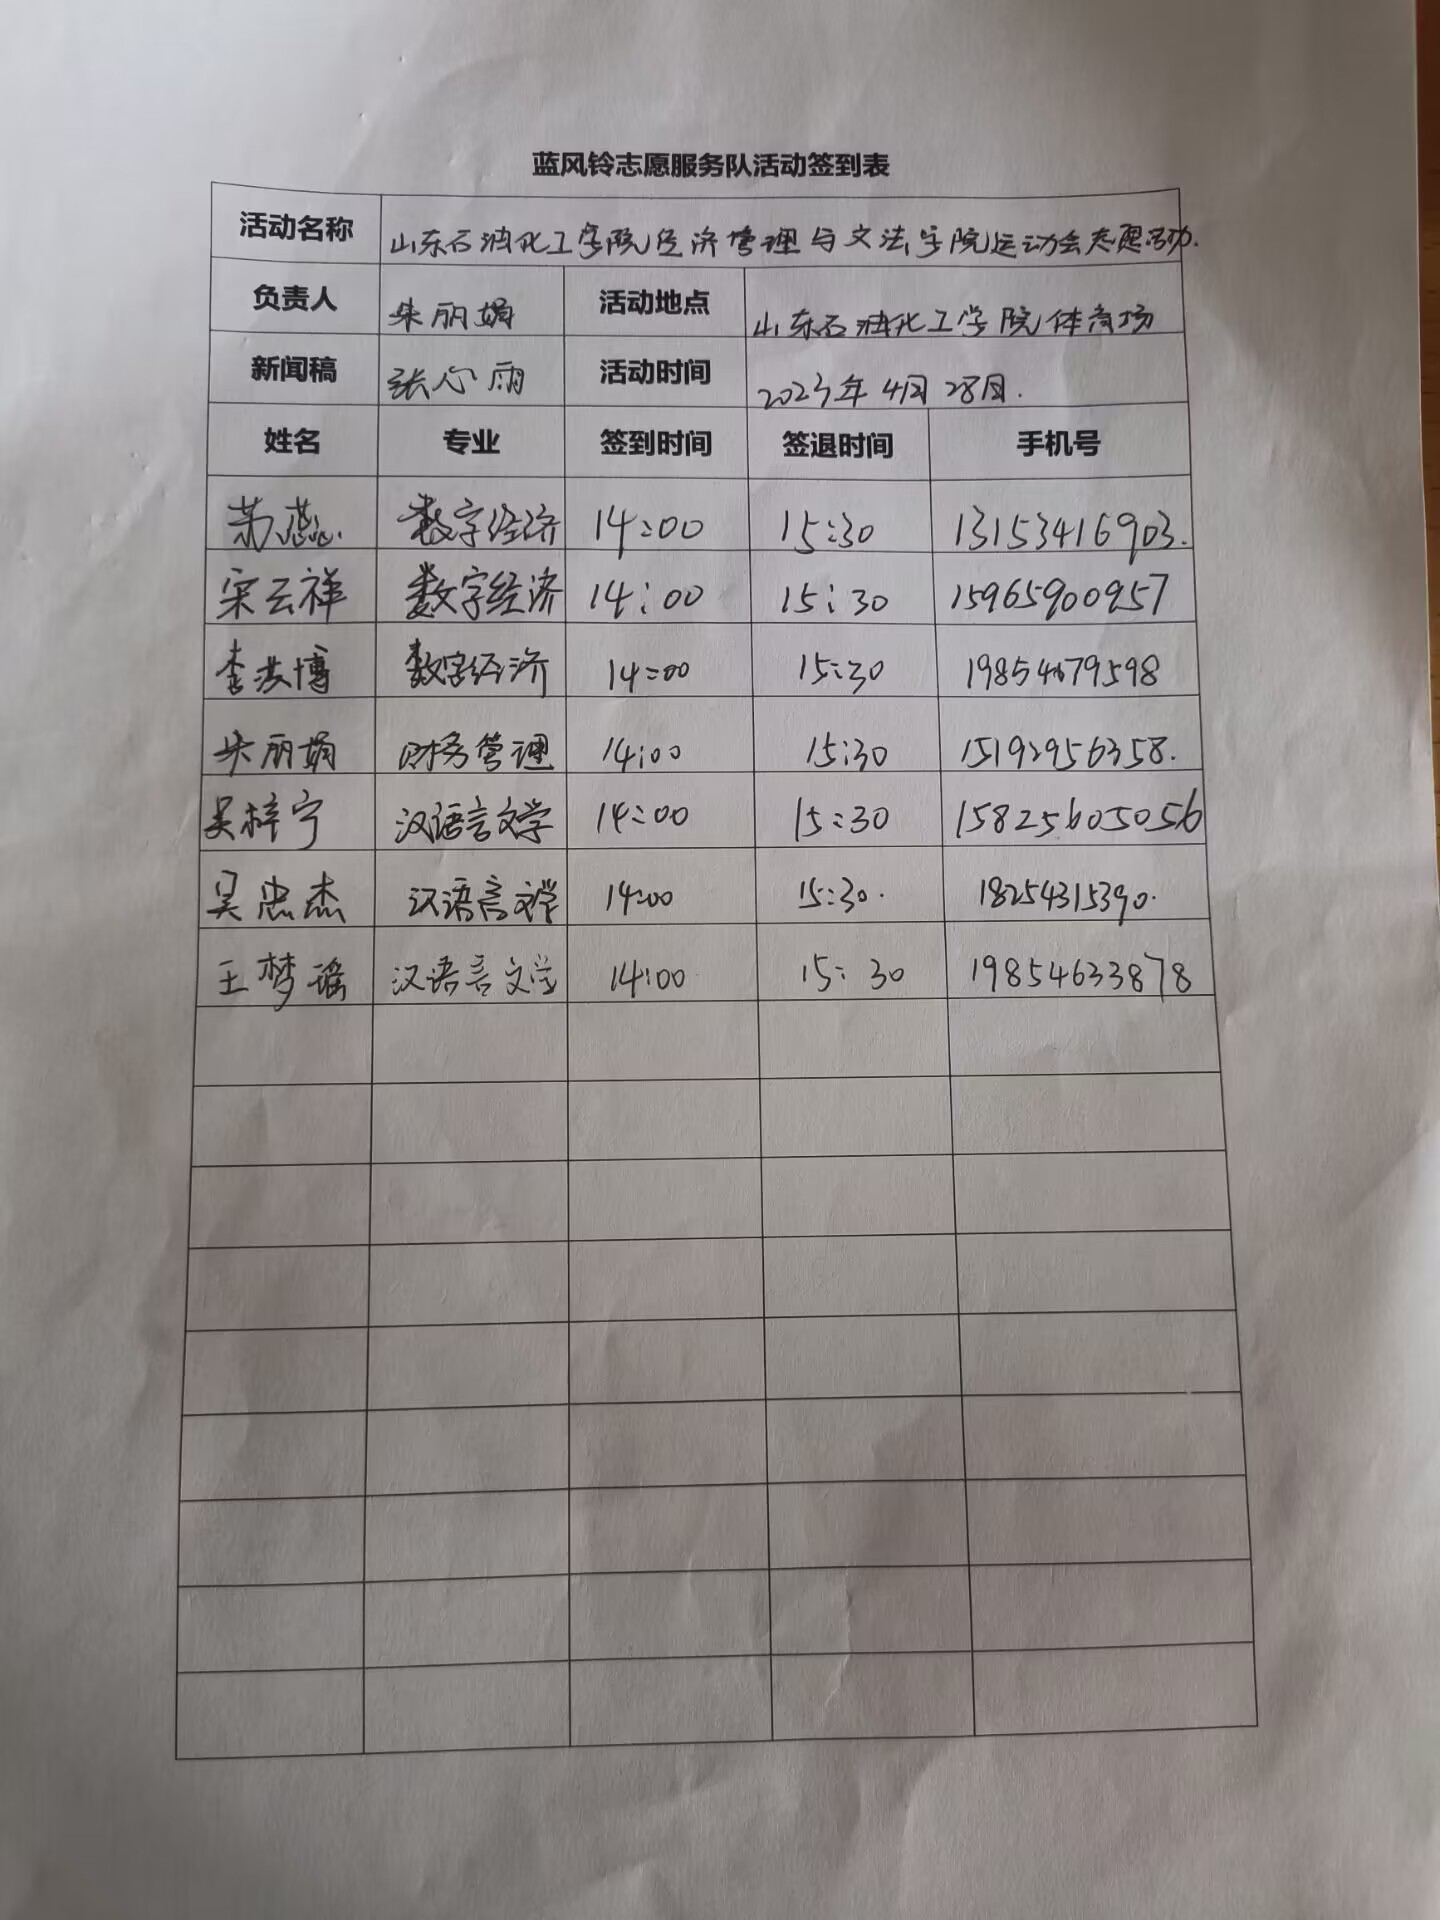 蓝风铃志愿服务队活动签到表
活动名称 山东石油化工学院经济管理与文法学院运动会志愿活动.
负责人 朱丽娟 活动地点 山东石油化工学院体育场
新闻稿 张心雨 活动时间 2023年4月28日.
姓名 专业 签到时间 签退时间 手机号
苏蕊. 数字经济 14:00 15:30 13153416903.
宋云祥 数字经济 14:00 15:30 15965900957
李洪博 数字经济 14:00 15:30 19854679598
朱丽娟 财务管理 14:00 15:30 15192956358.
吴梓宁 汉语言文学 14:00 15:30 15825605056
吴忠杰 汉语言文学 14:00 15:30. 18254315390.
王梦瑶 汉语言文学 14:00 15:30 19854633878